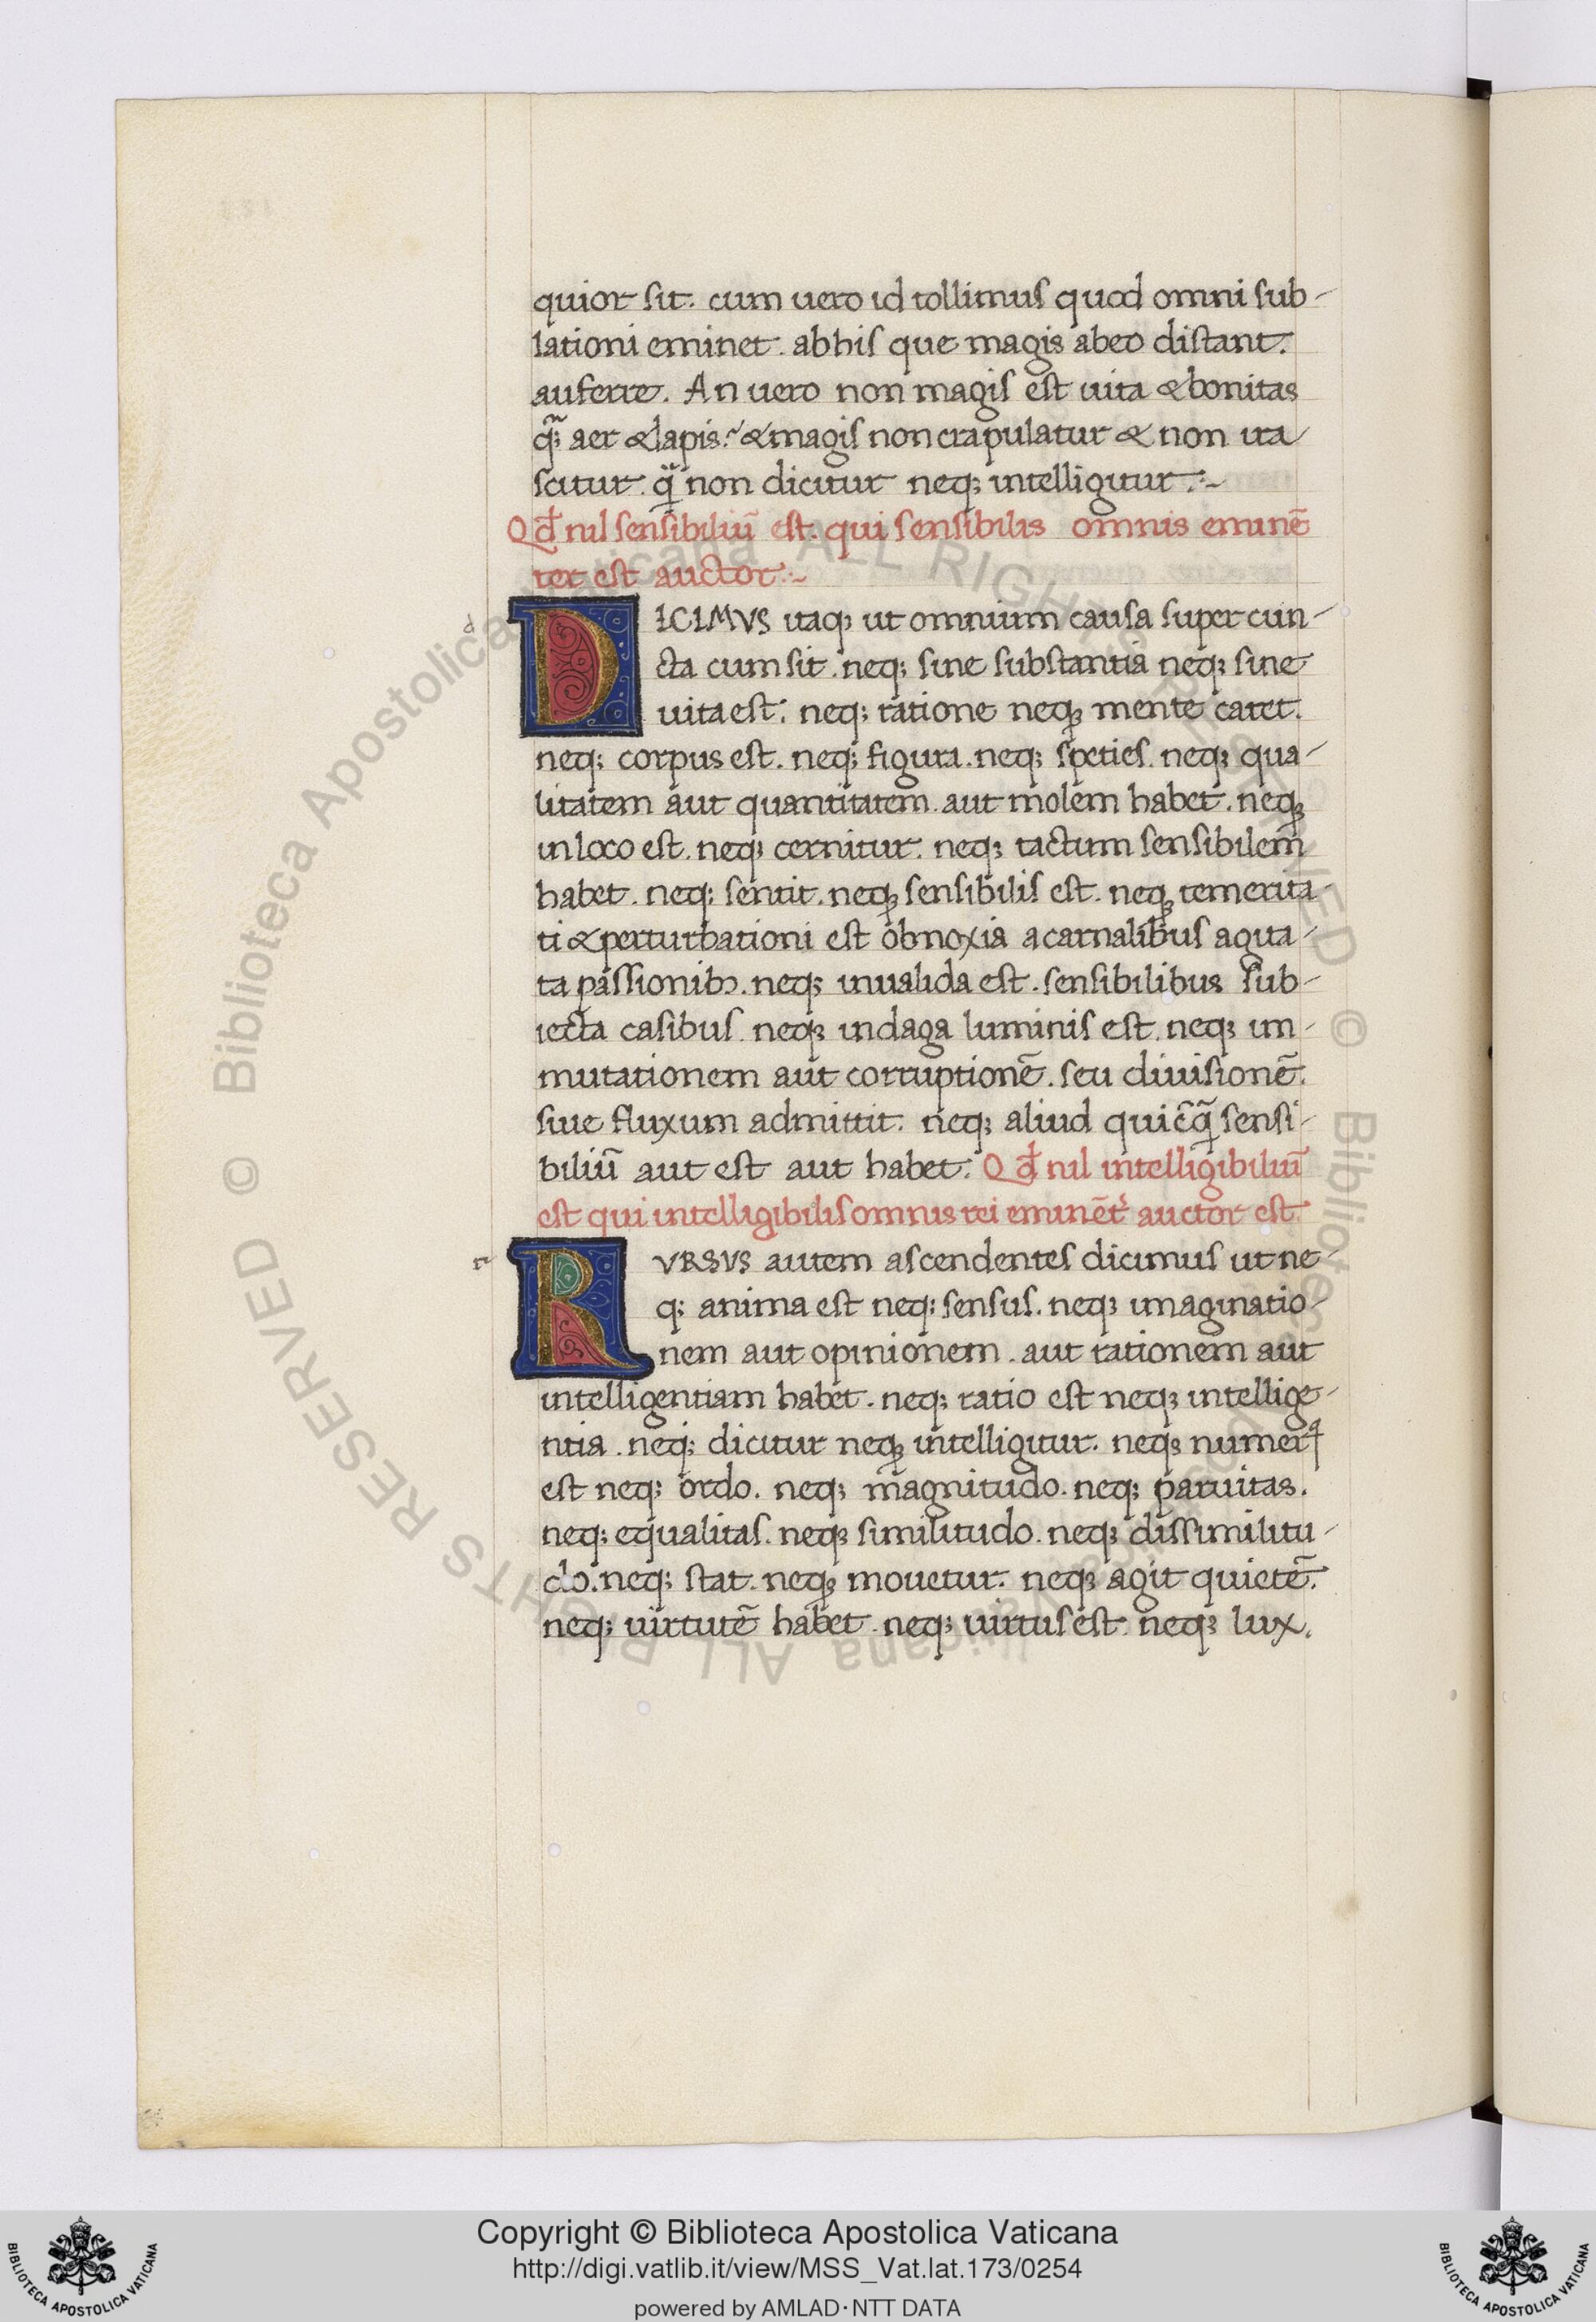 quior sit. cum uero id tollimus quod omni sub-
lationi eminet. abhis que magis abeo distant.
auferre. An uero non magis est uita & bonitas
q̃ȝ aer & lapis? & magis non crapulatur & non ira
scitur. q̃ non dicitur neqȝ intelligitur.:~
Qđ nil sensibiliū est. qui sensibilis omnis eminē
ter est auctor:~
d
DICIMVS itaqȝ ut omnium causa super cun-
cta cum sit. neqȝ sine substantia neqȝ sine
uita est. neqȝ ratione neqȝ mente caret.
neqȝ corpus est. neqȝ figura. neqȝ speties. neqȝ qua-
litatem aut quantitatem. aut molem habet. neqȝ
in loco est. neqȝ cernitur. neqȝ tactum sensibilem
habet. neqȝ sentit. neqȝ sensibilis est. neqȝ temerita-
ti & perturbationi est obnoxia acarnalibus agita-
ta passionibȝ. neqȝ inualida est. sensibilibus sub-
iecta casibus. neqȝ indaga luminis est. neqȝ im-
mutationem aut corruptionē. seu diuisionē.
siue fluxum admittit. neqȝ aliud quic̄q̃ sensi-
biliū aut est aut habet. Qđ nil intelligibiliū
est qui intelligibilis omnis rei eminēt᷑ auctor est.
r
RVRSVS autem ascendentes dicimus ut ne-
qȝ anima est neqȝ sensus. neqȝ imaginatio-
nem aut opinionem. aut rationem aut
intelligentiam habet. neqȝ ratio est neqȝ intellige-
ntia. neqȝ dicitur neqȝ intelligitur. neqȝ numerꝰ
est neqȝ ordo. neqȝ magnitudo. neqȝ paruitas.
neqȝ equalitas. neqȝ similitudo. neqȝ dissimilitu-
do. neqȝ stat. neqȝ mouetur. neqȝ agit quietē.
neqȝ uirtutē habet. neqȝ uirtus est. neqȝ lux.
© Biblioteca Apostolica Vaticana ALL RIGHTS RESERVED © Biblioteca Apostolica Vaticana ALL RIGHTS RESERVED
Copyright © Biblioteca Apostolica Vaticana
http://digi.vatlib.it/view/MSS_Vat.lat.173/0254
powered by AMLAD·NTT DATA
BIBLIOTECA APOSTOLICA VATICANA
BIBLIOTECA APOSTOLICA VATICANA